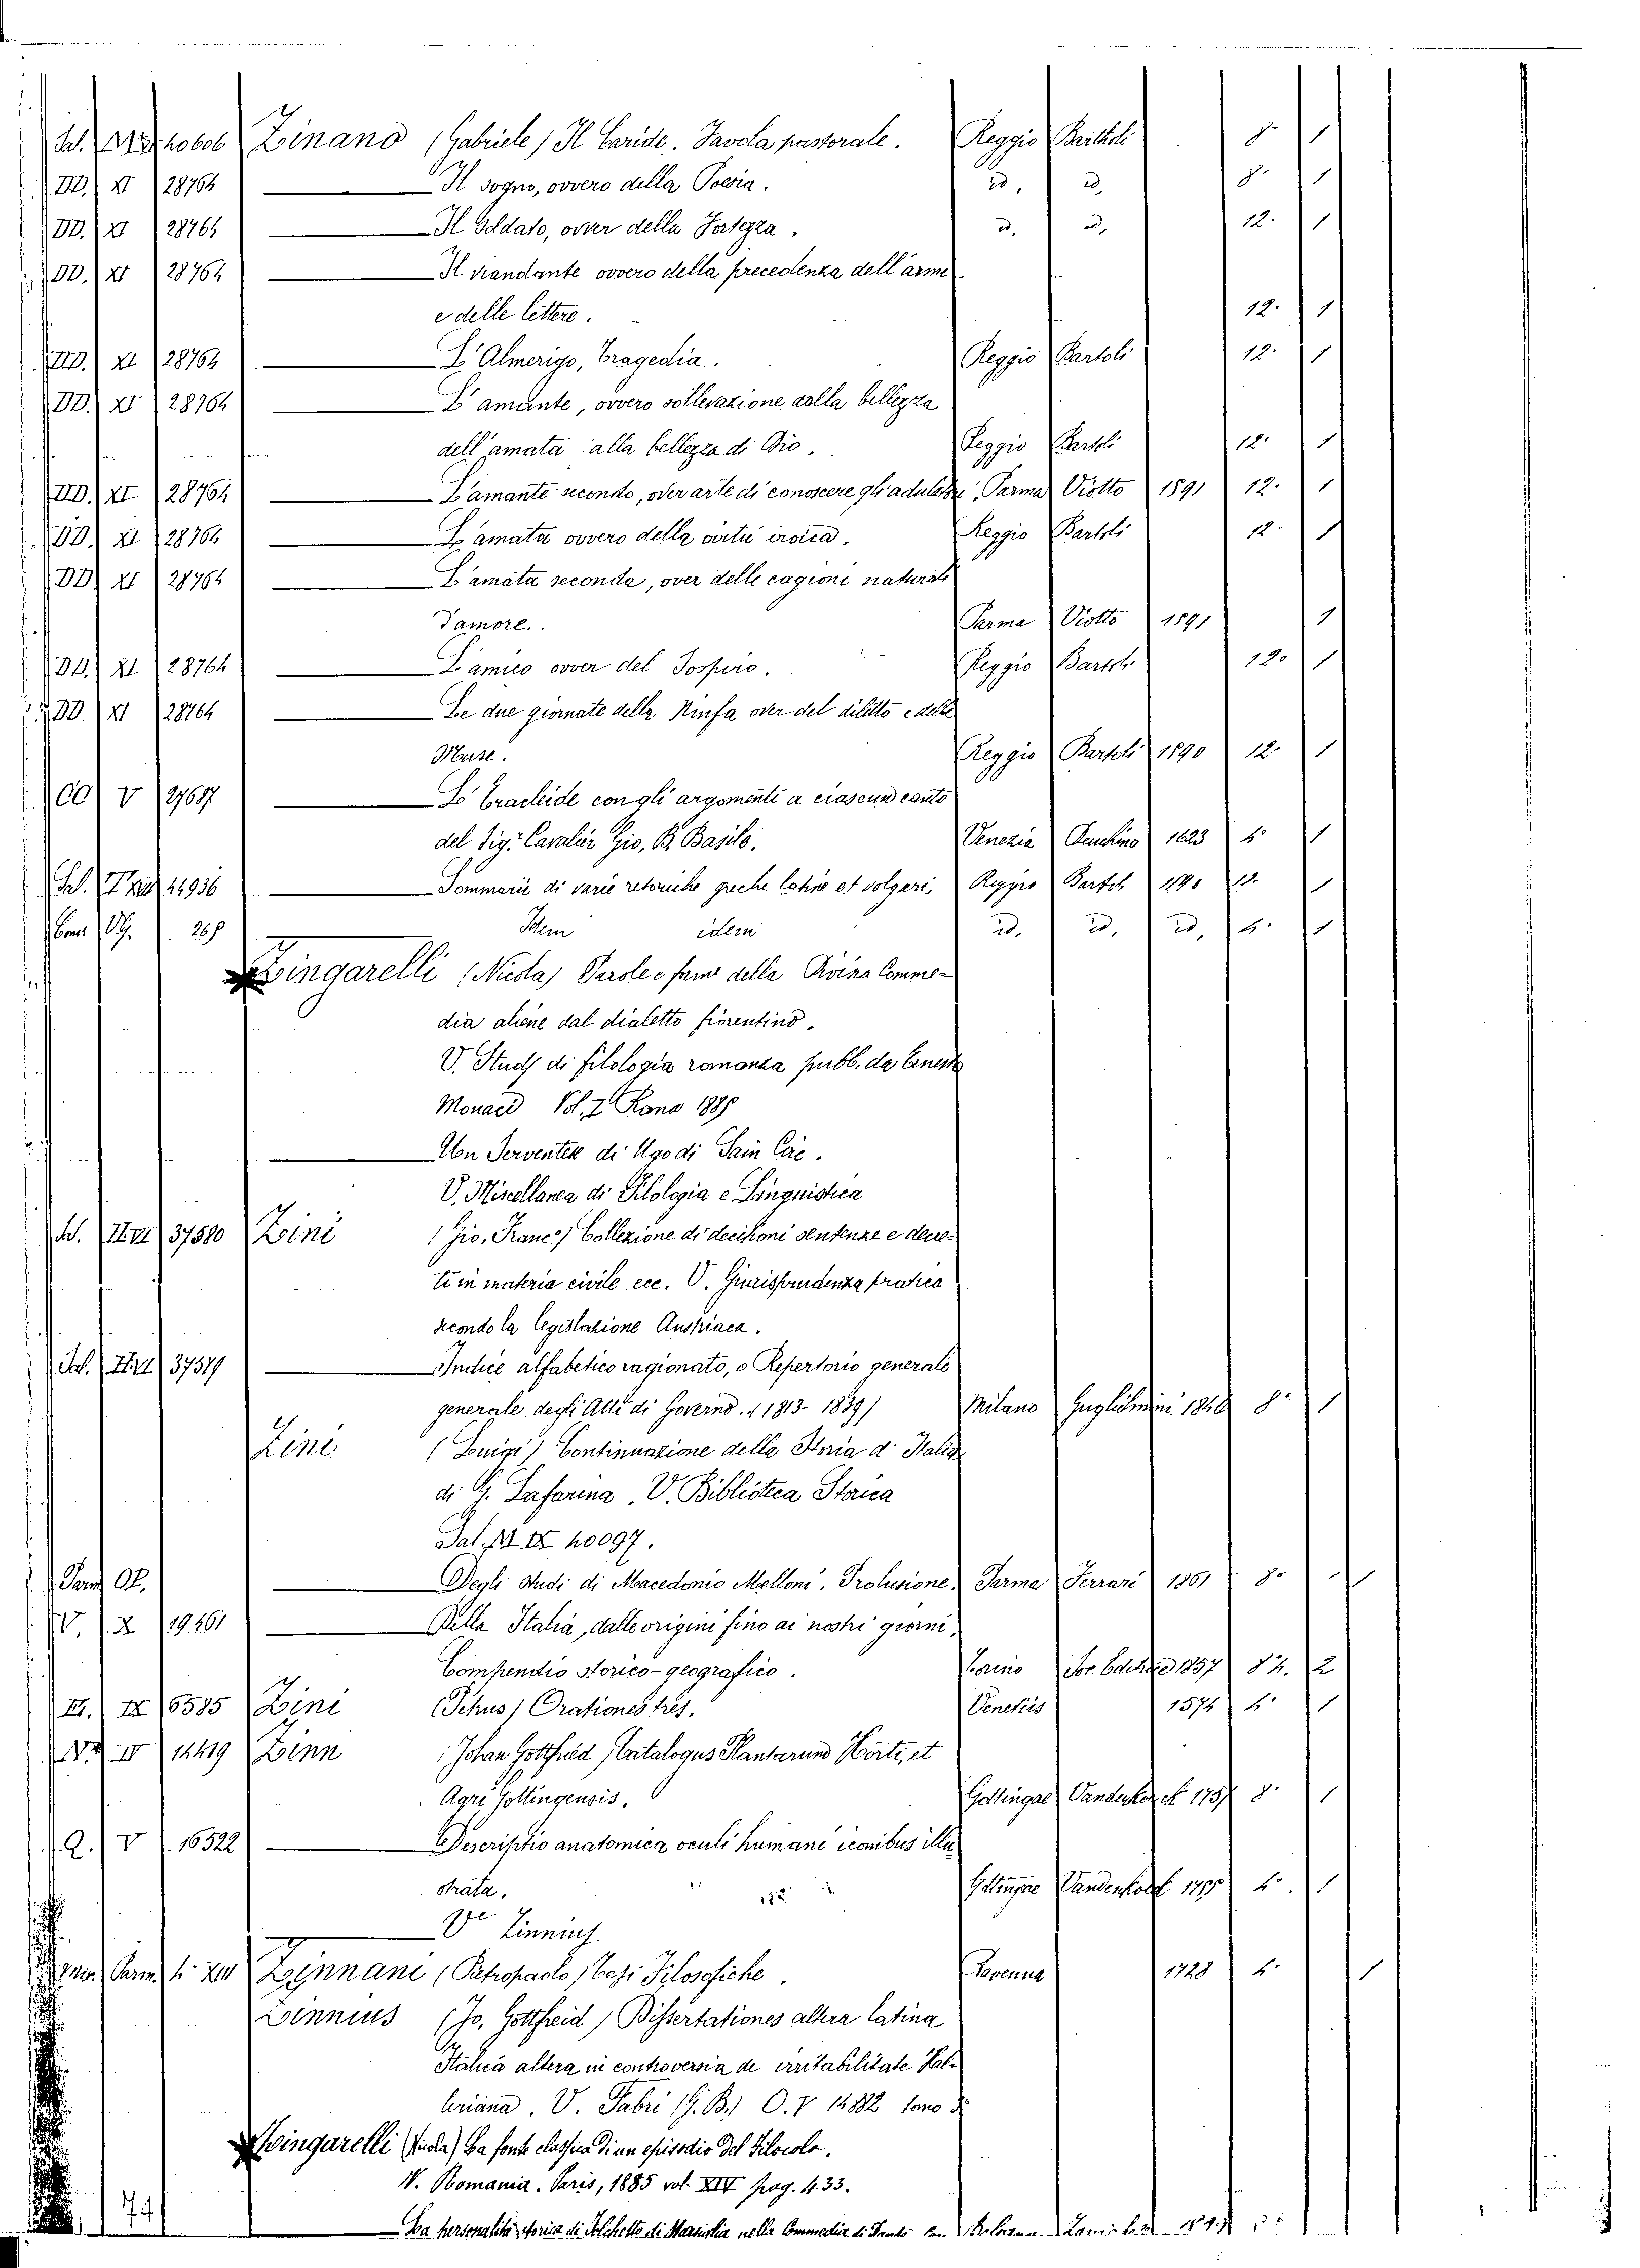 Zinano (Gabriele) Il Caride. Favola pastorale. Reggio 8. 1
DD. XI 28764 Il sogno, ovvero della Poesia. id. id. 8. 1
DD. XI 28764 Il Soldato, over della Fortezza. id. id. 12. 1
DD. XI 28764 Il viandante ovvero della precedenza dell'arme
e delle lettere. 12. 1
DD. XI 28764 L'Almerigo, Tragedia. Reggio Bartoli 12. 1
DD. XI 28764 L'amante, ovvero sollevazione dalla bellezza
dell'amata alla bellezza di Dio. Reggio Bartoli 12. 1
DD. XI 28764 L'amante secondo, over arte di conoscere gli adulatori. Parma Viotto 1591 12. 1
DD. XI 28764 L'amata ovvero della virtù eroica. Reggio Bartoli 12. 1
DD. XI 28764 L'amata seconda, over delle cagioni naturali
d'amore. Parma Viotto 1591 1
DD. XI 28764 L'amico ovver del Sospiro. Reggio Bartoli 12. 1
DD XI 28764 Le due giornate della Ninfa over del diletto e delle
Muse. Reggio Bartoli 1590 12. 1
CC V 27687 L'Eracleide con gli argomenti a ciascun canto
del Sig.r Cavalier Gio. B. Basile. Venezia Deuchino 1623 4. 1
Sommarii di varie retoriche greche latine et volgari. Reggio Bartoli 1590 12. 1
269 Idem idem id. id. id. 4. 1
Zingarelli (Nicola) Parole e forme della Divina Comme-
dia aliene dal dialetto fiorentino.
V. Studj di filologia romanza pubb. da Ernesto
Monaci Vol. I Roma 1885
Un Serventese di Ugo di Sain Circ.
V. Miscellanea di Filologia e Linguistica
37580 Zini (Gio. Franc.o) Collezione di decisioni sentenze e decre-
ti in materia civile ecc. V. Giurisprudenza pratica
secondo la legislazione Austriaca.
Sal. 37579 Indice alfabetico ragionato, o Repertorio generale
generale degli Atti di Governo. (1813-1839) Milano Guglielmini 8. 1
Zini (Luigi) Continuazione della Storia d'Italia
di G. Lafarina. V. Biblioteca Storica
Sal. M. IX 40097.
Degli studi di Macedonio Melloni. Prolusione. Parma Ferrari 1861 8. 1
V. X 19461 Della Italia, dalle origini fino ai nostri giorni,
Compendio storico-geografico. Torino 1857 2
IX 6585 Zini (Petrus) Orationes tres. Venetiis 1574 4. 1
IV 14419 Zinn (Johan Gottfried) Catalogus Plantarum Horti, et
Agri Gottingensis. Gottingae Vandenhoeck 1757 8. 1
Q. V 16522 Descriptio anatomica oculi humani iconibus illu-
strata. Gottingae Vandenhoeck 1755 4. 1
V.e Zinnius
Zinnani (Pietropaolo) Tesi Filosofiche. Ravenna 1728 4. 1
Zinnius (Jo. Gottfreid) Dissertationes altera latina
Italica altera in controversia de irritabilitate Hal-
leriana. V. Fabri (G. B.) O. V 14882 tomo
Zingarelli (Nicola) La fonte classica di un episodio del Filocolo.
V. Romania. Paris, 1885 vol. XIV pag. 433.
74
La personalità storica di Folchetto di Marsiglia nella Commedia di Dante